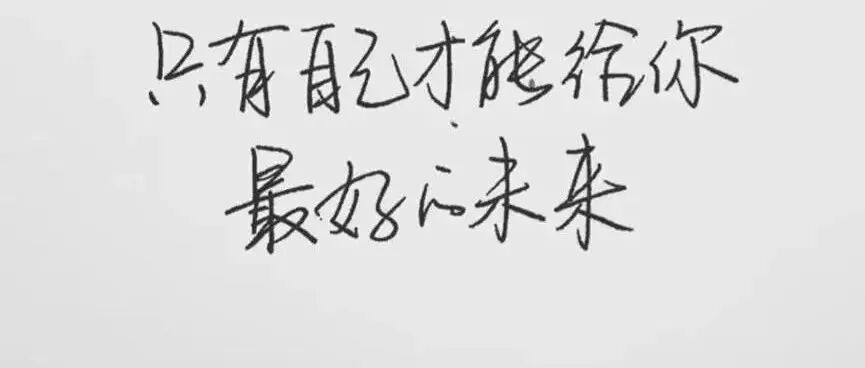 只有自己才能给你
最好的未来